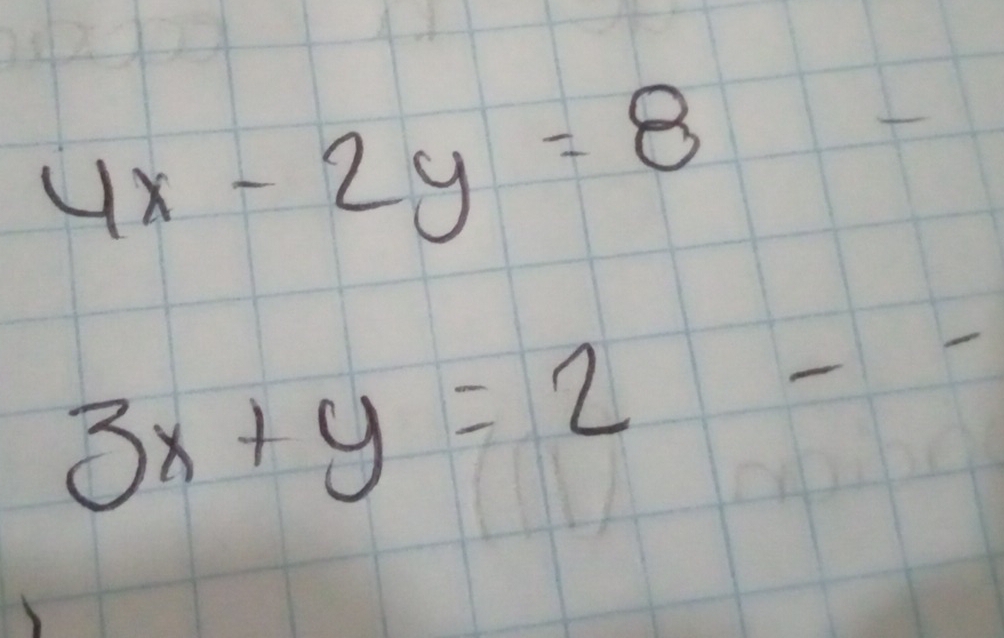 4x - 2y = 8 -
3x + y = 2 - -